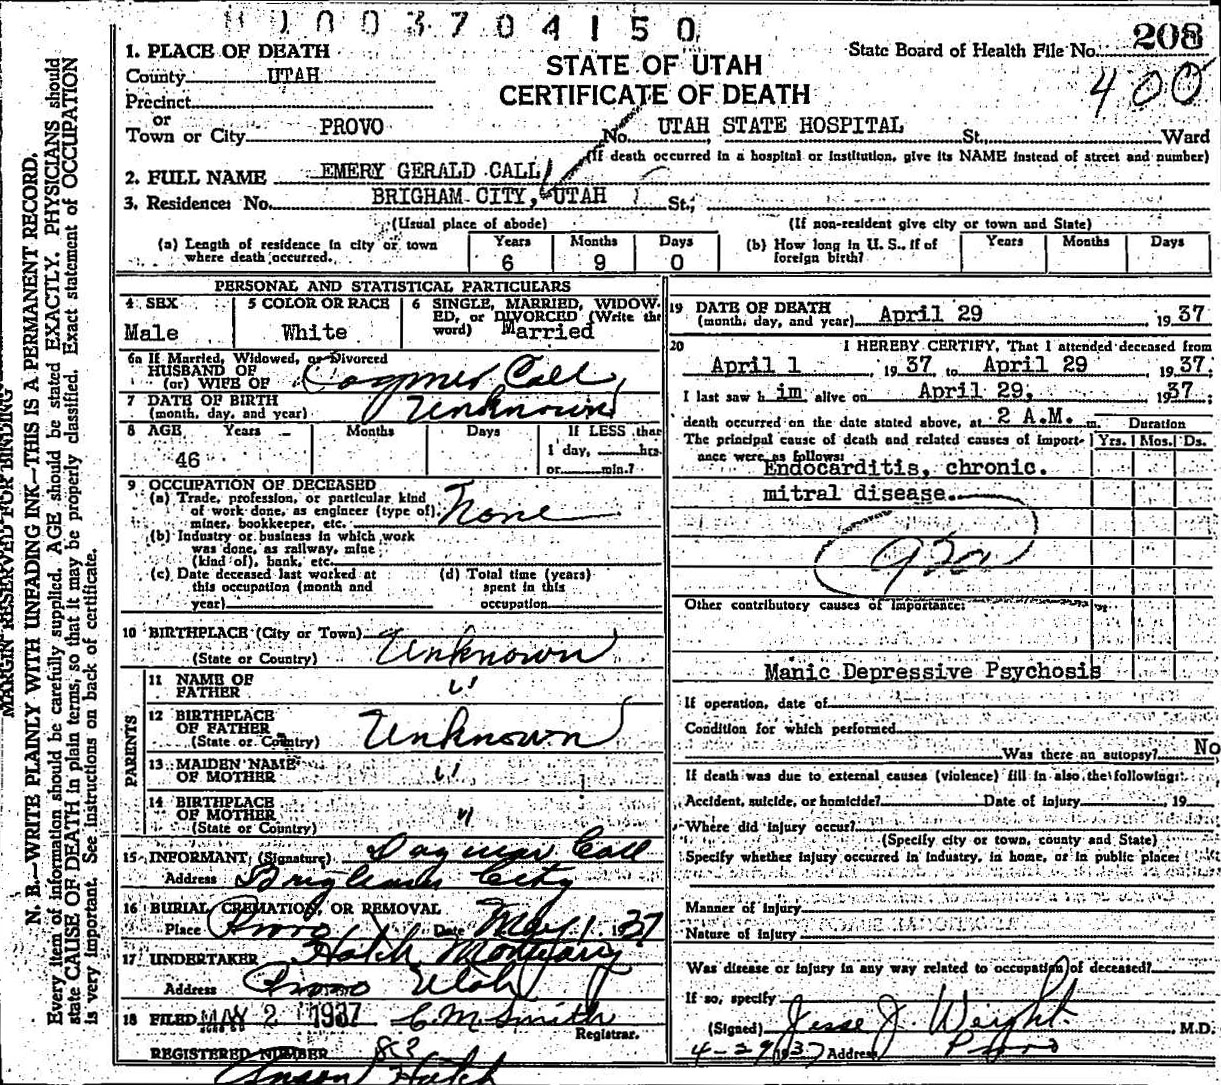 1003704150
State Board of Health File No. 208
400
STATE OF UTAH
CERTIFICATE OF DEATH
1. PLACE OF DEATH
County UTAH
Precinct
or
Town or City PROVO No. UTAH STATE HOSPITAL St. Ward
(If death occurred in a hospital or institution, give its NAME instead of street and number)
2. FULL NAME EMERY GERALD CALL
3. Residence: No. BRIGHAM CITY, UTAH St.;
(Usual place of abode) (If non-resident give city or town and State)
(a) Length of residence in city or town where death occurred. Years 6 Months 9 Days 0
(b) How long in U. S., if of foreign birth? Years Months Days
PERSONAL AND STATISTICAL PARTICULARS
4 SEX Male
5 COLOR OR RACE White
6 SINGLE, MARRIED, WIDOWED, or DIVORCED (Write the word) Married
6a If Married, Widowed, or Divorced
HUSBAND OF
(or) WIFE OF Call
7 DATE OF BIRTH
(month, day, and year) Unknown
8 AGE Years Months Days If LESS than
46 1 day, hrs.
or min.?
9 OCCUPATION OF DECEASED
(a) Trade, profession, or particular kind
of work done, as engineer (type of), None
miner, bookkeeper, etc.
(b) Industry or business in which work
was done, as railway, mine
(kind of), bank, etc.
(c) Date deceased last worked at
this occupation (month and
year)
(d) Total time (years)
spent in this
occupation
10 BIRTHPLACE (City or Town)
(State or Country) Unknown
PARENTS
11 NAME OF
FATHER "
12 BIRTHPLACE
OF FATHER Unknown
(State or Country)
13 MAIDEN NAME
OF MOTHER "
14 BIRTHPLACE
OF MOTHER "
(State or Country)
15 INFORMANT (Signature) Dagmar Call
Address Brigham City
16 BURIAL, CREMATION, OR REMOVAL
Place Provo Date May 1 1937
17 UNDERTAKER Hatch Mortuary
Address Provo Utah
18 FILED MAY 2 1937 C. M. Smith
Registrar.
REGISTERED NUMBER
Hatch
19 DATE OF DEATH
(month, day, and year) April 29 1937
20 I HEREBY CERTIFY, That I attended deceased from
April 1 1937 to April 29 1937;
I last saw him alive on April 29, 1937;
death occurred on the date stated above, at 2 A.M. m. Duration
The principal cause of death and related causes of importance were as follows: Yrs. Mos. Ds.
Endocarditis, chronic.
mitral disease.
92a
Other contributory causes of importance:
Manic Depressive Psychosis
If operation, date of
Condition for which performed
Was there an autopsy? No
If death was due to external causes (violence) fill in also the following:
Accident, suicide, or homicide? Date of injury 19
Where did injury occur?
(Specify city or town, county and State)
Specify whether injury occurred in industry, in home, or in public place:
Manner of injury
Nature of injury
Was disease or injury in any way related to occupation of deceased?
If so, specify
(Signed) Jesse J. Weight M.D.
4-29 1937 Address Provo
MARGIN RESERVED FOR BINDING
N. B.—WRITE PLAINLY WITH UNFADING INK—THIS IS A PERMANENT RECORD.
Every item of information should be carefully supplied. AGE should be stated EXACTLY. PHYSICIANS should
state CAUSE OF DEATH in plain terms, so that it may be properly classified. Exact statement of OCCUPATION
is very important. See instructions on back of certificate.